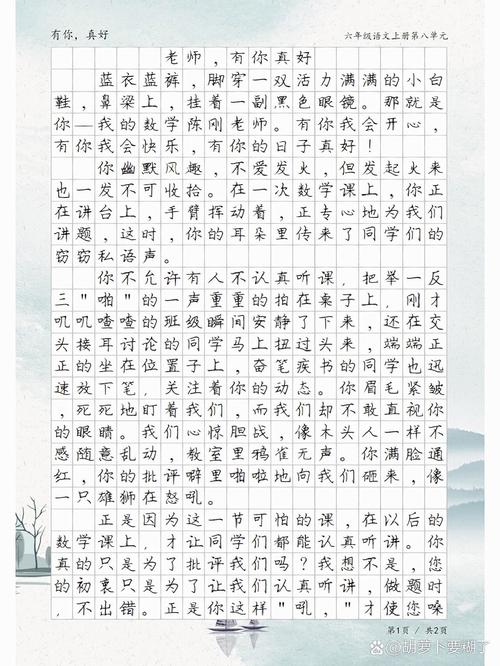 有你，真好
六年级语文上册第八单元
老师，有你真好
蓝衣蓝裤，脚穿一双活力满满的小白
鞋，鼻梁上，挂着一副黑色眼镜。那就是
你—我的数学陈刚老师。有你我会开心，
有你我会快乐，有你的日子真好！
你幽默风趣，不爱发火，但发起火来
也一发不可收拾。在一次数学课上，你正
在讲台上，手臂挥动着，正专心地为我们
讲题，这时，你的耳朵里传来了同学们的
窃窃私语声。
你不允许有人不认真听课，把举一反
三"啪"的一声重重的拍在桌子上，刚才
叽叽喳喳的班级瞬间安静了下来，还在交
头接耳讨论的同学马上扭过头来，端端正
正的坐在位置子上，奋笔疾书的同学也迅
速放下笔，关注着你的动态。你眉毛紧皱
，死死地盯着我们，而我们却不敢直视你
的眼睛。我们心惊胆战，像木头人一样不
感随意乱动，教室里鸦雀无声。你满脸通
红，你的批评噼里啪啦地向我们砸来，像
一只雄狮在怒吼。
正是因为这一节可怕的课，在以后的
数学课上，才让同学们都能认真听讲。你
真的只是为了批评我们吗？我想不是，您
的初衷只是为了让我们认真听讲，做题时
，不出错。正是你这样"吼，"才使您嗓
第1页 / 共2页
胡萝卜要糊了